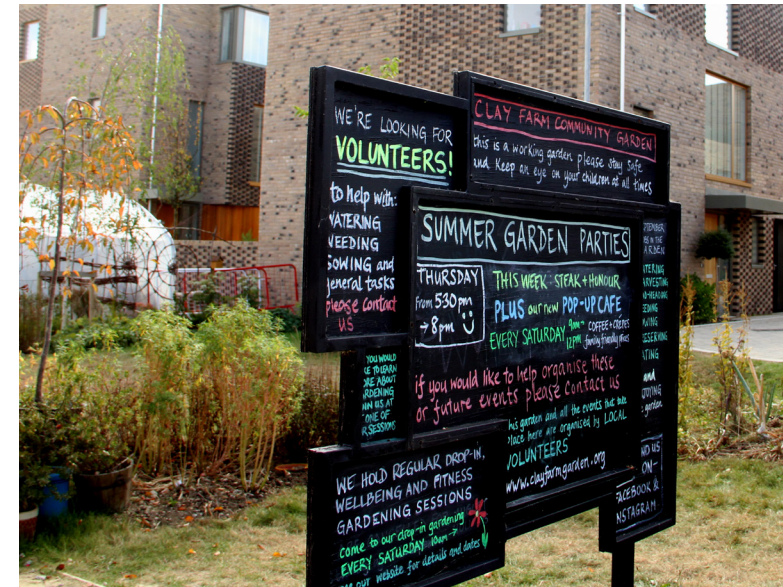 WE'RE LOOKING FOR
VOLUNTEERS!
to help with:
WATERING
WEEDING
SOWING and
general tasks
please contact
US
CLAY FARM COMMUNITY GARDEN
this is a working garden please stay safe
and keep an eye on your children at all times
SUMMER GARDEN PARTIES
THURSDAY
from 5:30 pm
→ 8pm
THIS WEEK - STEAK + HONOUR
PLUS our new POP-UP CAFE
EVERY SATURDAY 9am - 12pm
COFFEE + CRÊPES
family friendly prices
if you would like to help organise these
or future events please contact us
this garden and all the events that take
place here are organised by LOCAL
VOLUNTEERS
www.clayfarmgarden.org
YOU WOULD
TO LEARN
ABOUT
US AT
ONE OF
SESSIONS
WE HOLD REGULAR DROP-IN,
WELLBEING AND FITNESS
GARDENING SESSIONS
come to our drop-in gardening
EVERY SATURDAY 10am →
our website for details and dates
IN THE
and
garden
US
ON -
FACEBOOK &
INSTAGRAM